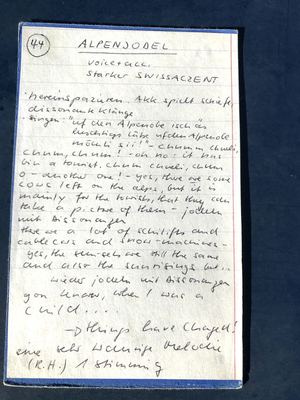 44
ALPENJODEL
voicetrack
starker SWISSACZENT
· hereinspazieren. Akk spielt schiefe,
dissonante klänge.
· singen: "uf den Alpenobe isch äs
luschtigs Läbe uf den Alpenobe
möcht i sii!" - chumm chueli,
chumm, chumm! - oh no: it has
bin a tourist. chum chueli chum
o - another one! - yes, there are some
cows left on the alps, but it is
mainly for the tourists, that they can
take a picture of them - jodeln
mit Dissonanzen
there are a lot of schilifts and
cable cars and snow-machines -
yes, the sun-sets are still the same
and also the sunrisings but...
wieder jodeln mit Dissonanzen
you know, when I was a
child....
→ things have changed!
eine sehr Melodie
(R.H.) 1 stimmig